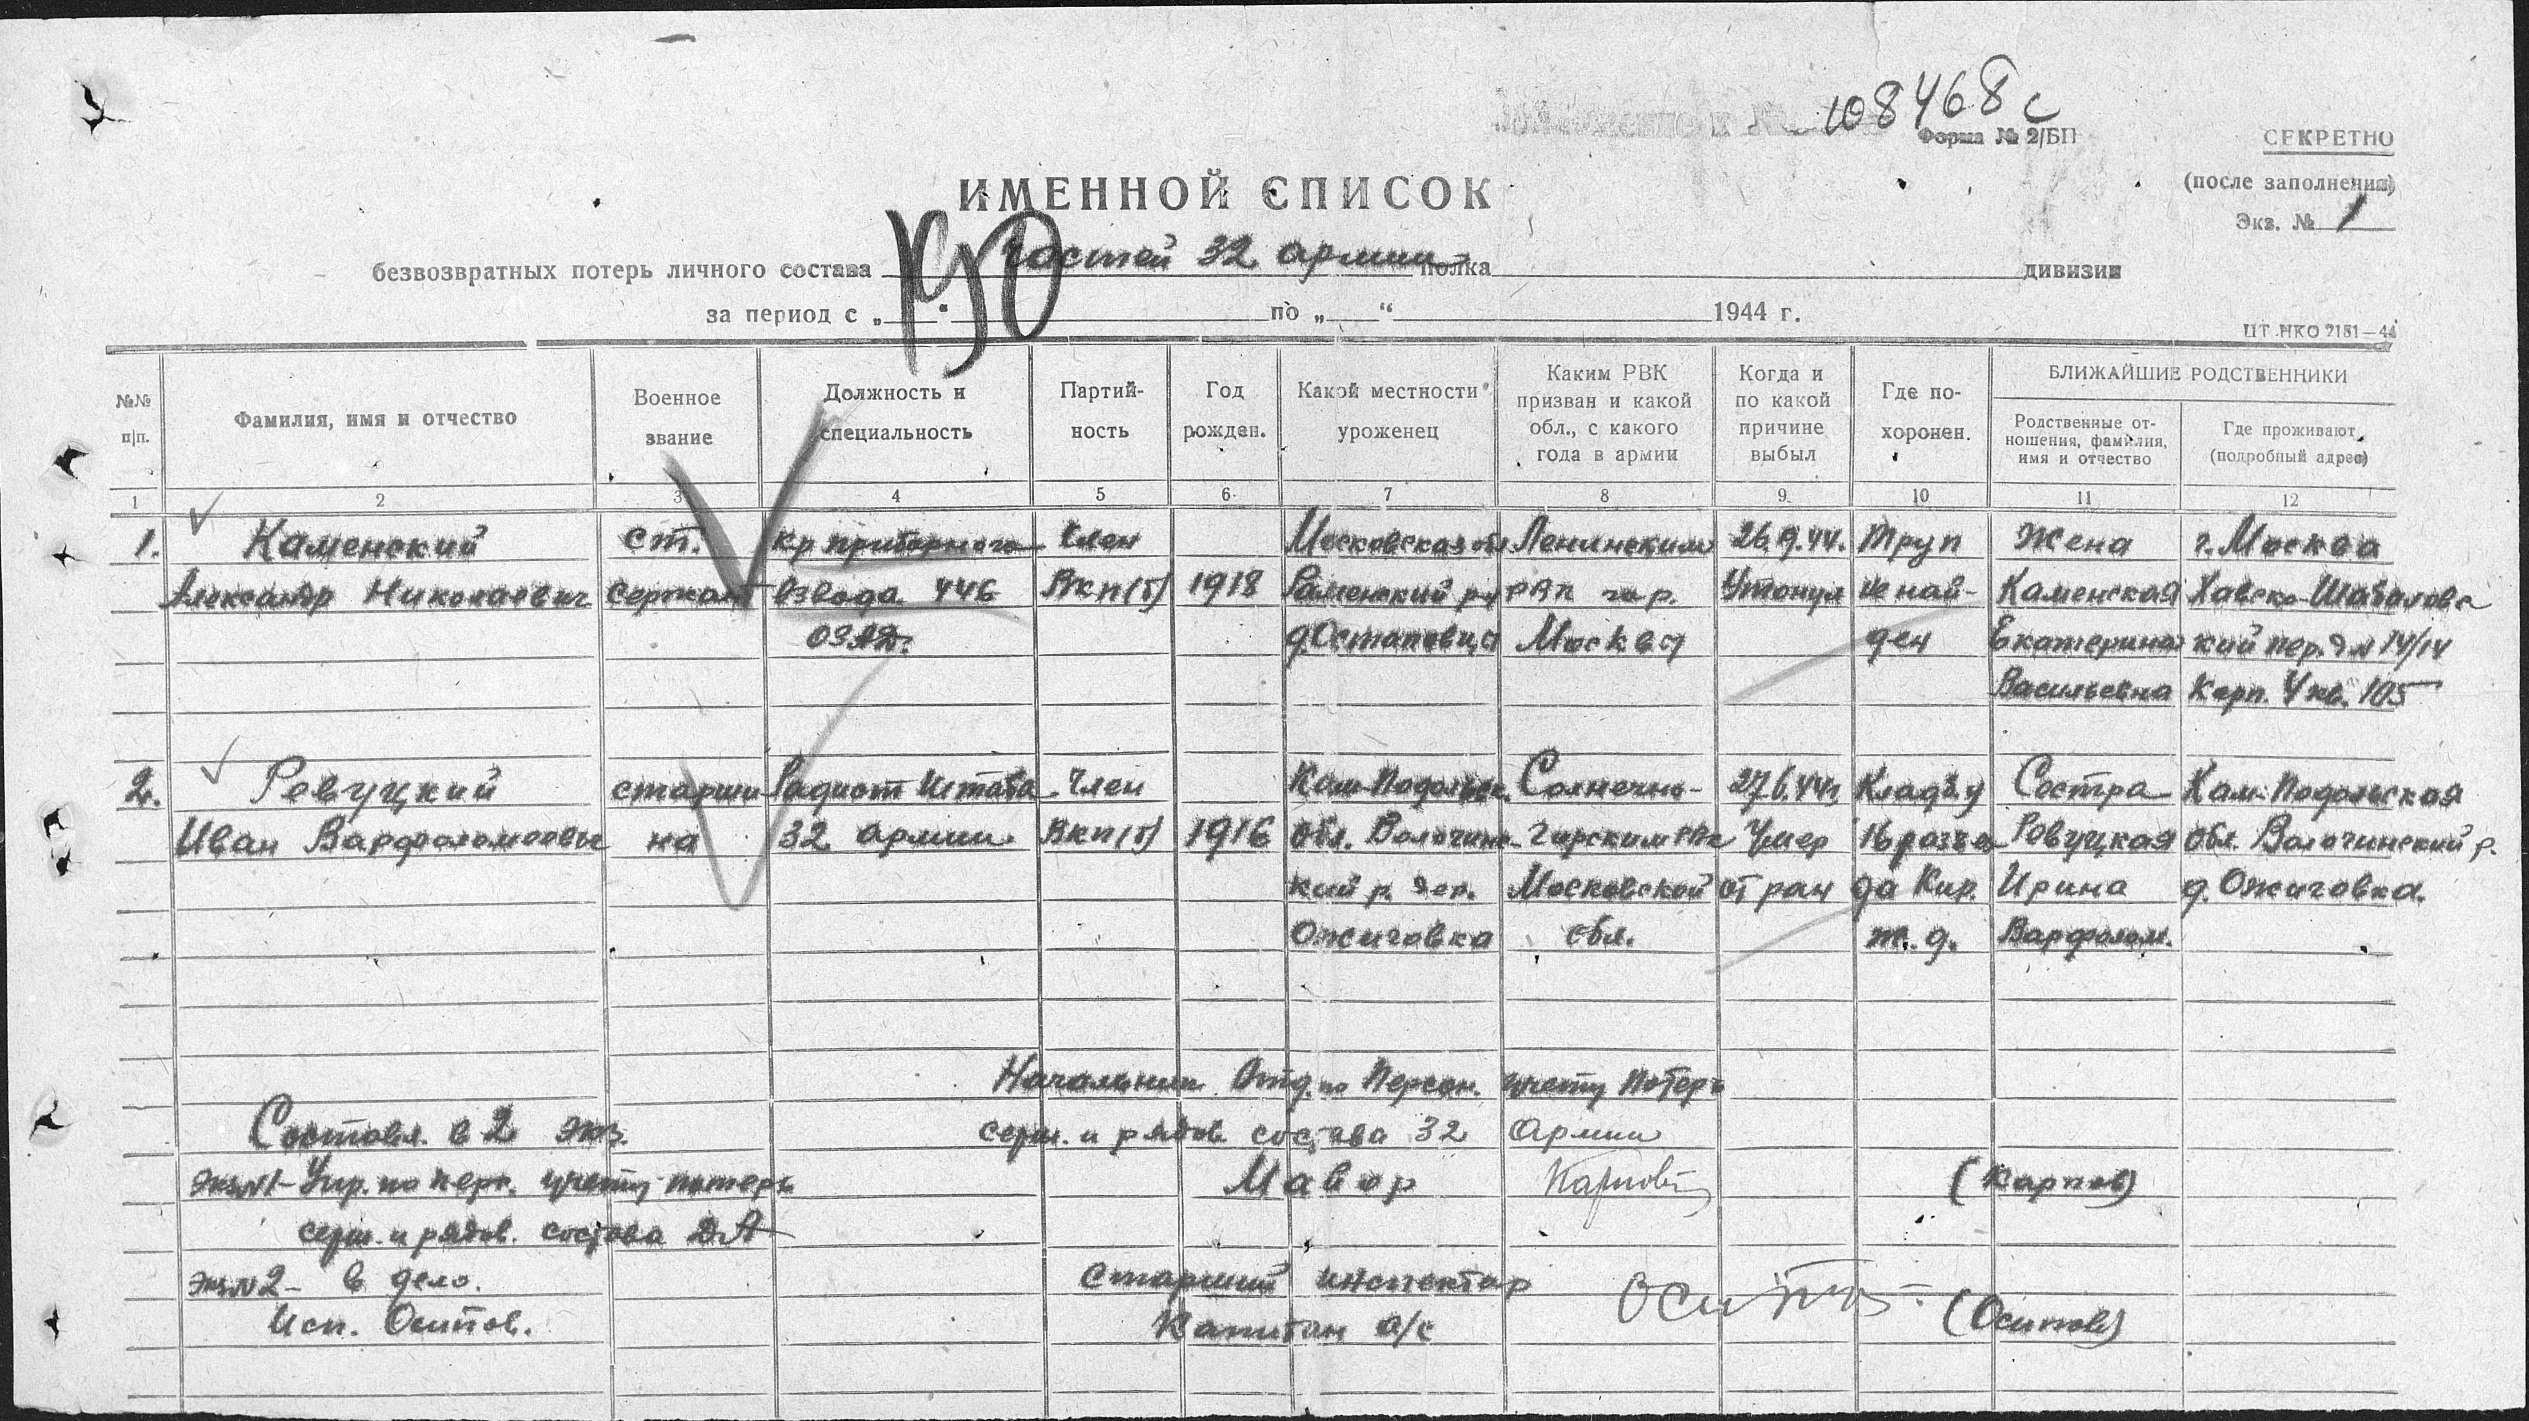 108468с
Форма № 2/БП
СЕКРЕТНО
(после заполнения)
Экз. № 1
ИМЕННОЙ СПИСОК
безвозвратных потерь личного состава частей 32 армии полка дивизии
за период с „ “ по „ “ 1944 г.
ЦТ НКО 2181—44
№№ п/п.
Фамилия, имя и отчество
Военное звание
Должность и специальность
Партий-
ность
Год рожден.
Какой местности уроженец
Каким РВК
призван и какой
обл., с какого
года в армии
Когда и
по какой
причине
выбыл
Где по-
хоронен.
БЛИЖАЙШИЕ РОДСТВЕННИКИ
Родственные от-
ношения, фамилия,
имя и отчество
Где проживают
(подробный адрес)
1 2 3 4 5 6 7 8 9 10 11 12
1. Каменский ст. кр приборного Член Московская обл Ленинским 26.9.44. Труп Жена г. Москва
Александр Николаевич сержант взвода 446 ВКП(б) 1918 Раменский РВК гор. Утонул не най- Каменская Хавско-Шаболовс
ОЗАД. Москва ден Екатерина кий пер. д№ 14/14
Васильевна Корп. 4 кв. 105
2. Ревуцкий старши Радист Штаба Член Кам-Подольск. Солнечно- 27.6.44г. Кладб. у Сестра Кам-Подольская
Иван Варфоломеевич на 32 армии ВКП(б) 1916 обл. Волочинс- горским РВК Умер 16 разъез Ревуцкая обл. Волочинский р.
кий р. дер. Московской от ран да Кир. Ирина д. Ожиговка.
Ожиговка обл. ж. д. Варфолом.
Начальник Отд. по Персон. учету потерь
Составл. в 2 экз. серж. и рядов. состава 32 Армии
экз№1- Упр. по перс. учету потерь Майор (Карпов)
серж. и рядов. состава ДА
экз№2- в дело. Старший инспектор
Исп. Осипов. Капитан а/с Осипов (Осипов)